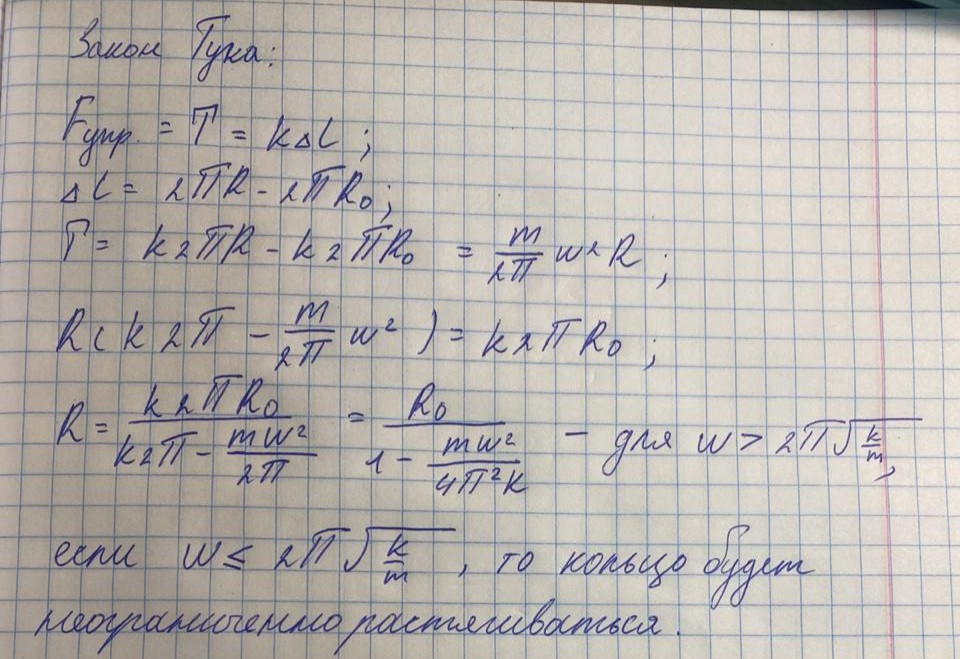 Закон Гука:
Fупр. = T = kΔL ;
ΔL = 2ПR - 2ПR₀ ;
T = k2ПR - k2ПR₀ = m/2П w²R ;
R(k2П - m/2П w²) = k2ПR₀ ;
R = k2ПR₀/(k2П - mw²/2П) = R₀/(1 - mw²/4П²k) - для w > 2П√(k/m),
если w ≤ 2П√(k/m) , то кольцо будет
неограниченно растягиваться.